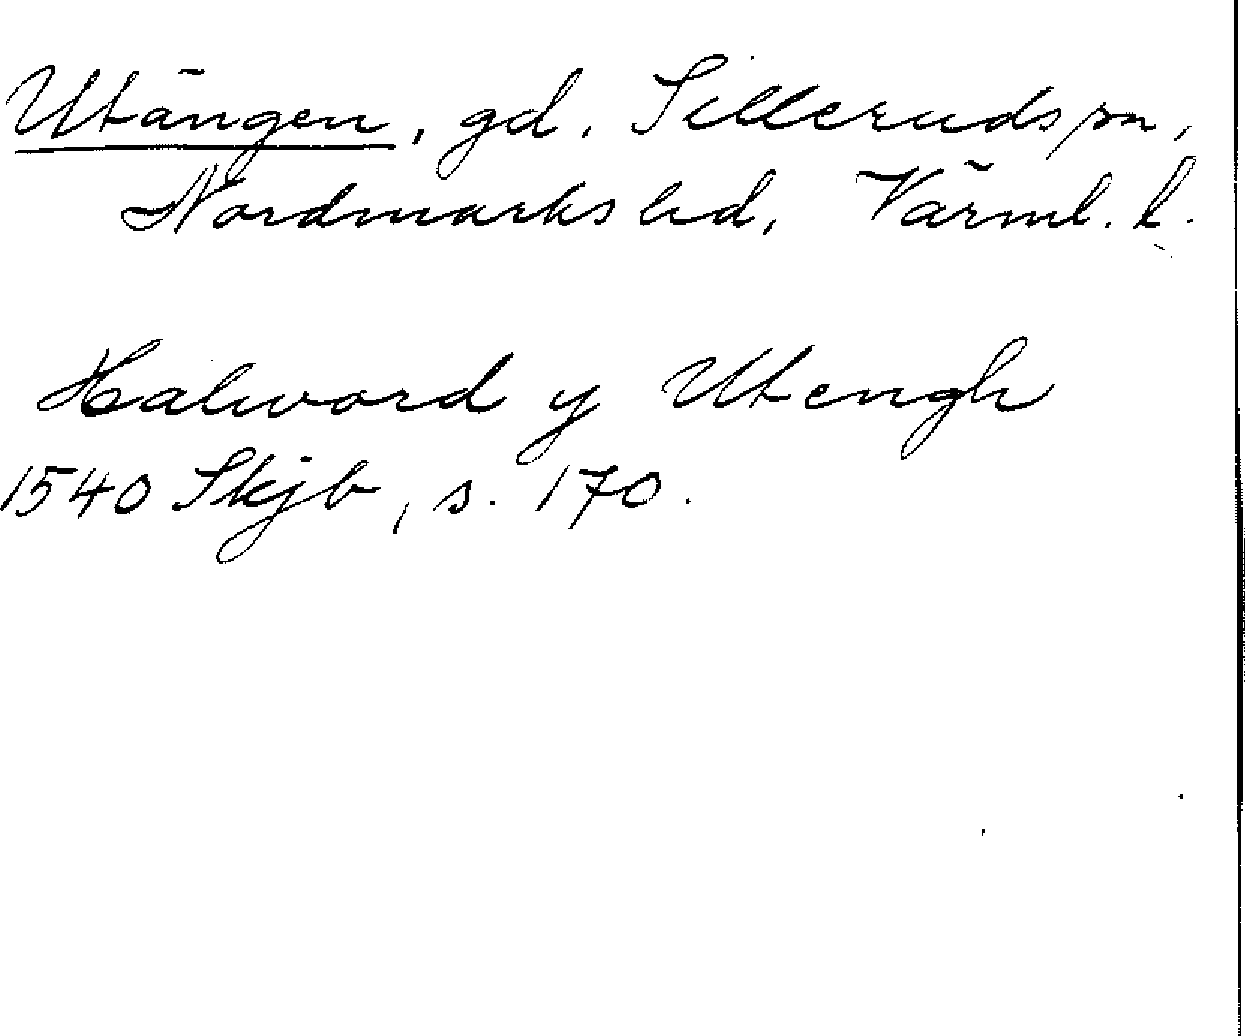 Utängen, gd. Sillerudssn,
Nordmarks hd, Värml. l.
Halword y Utengh
1540 Skjb, s. 170.